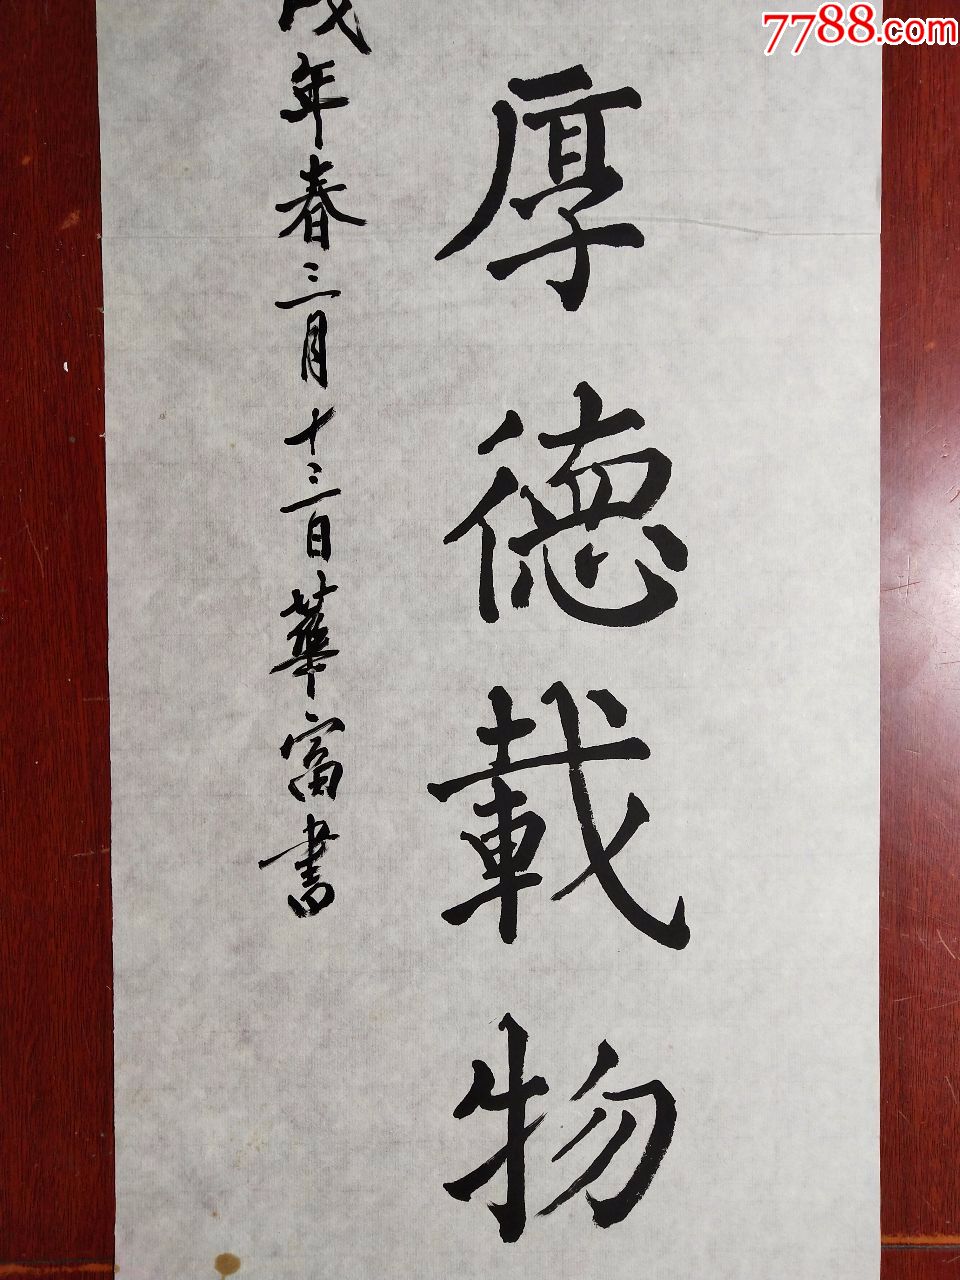 厚德載物
戌年春三月十三日華富書
7788.com